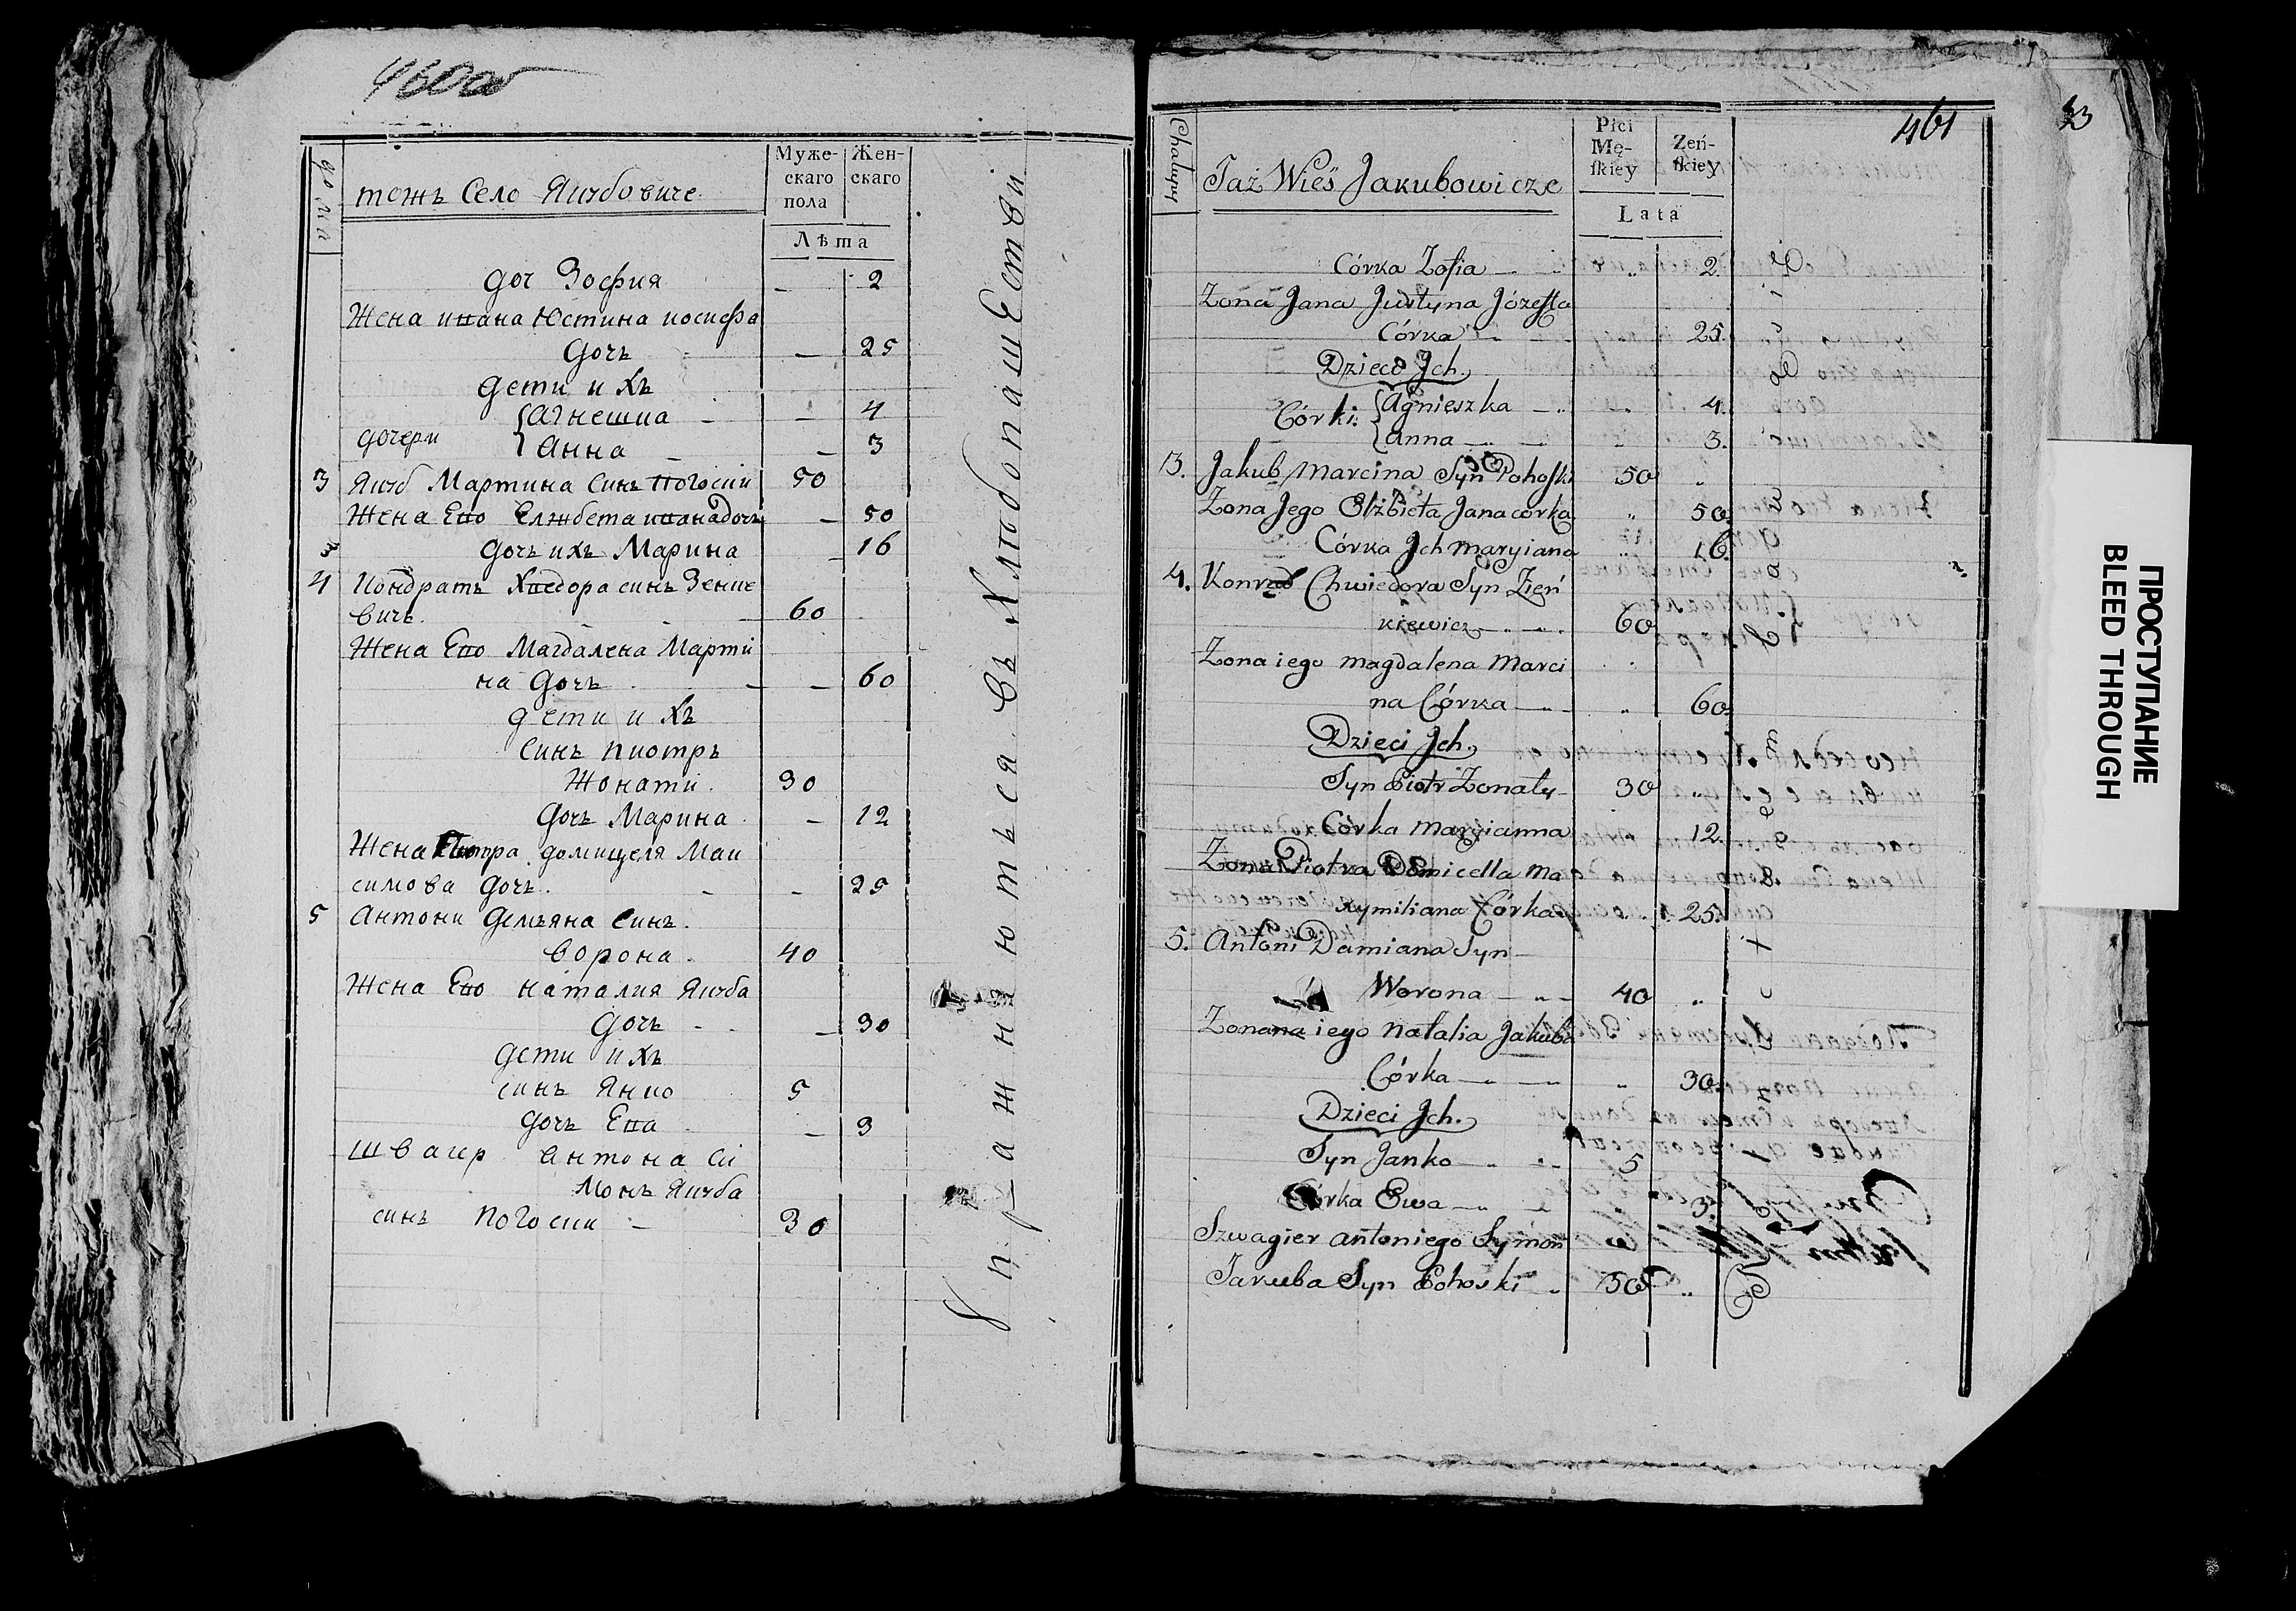 460 об
дома
тожъ Село Якубовиче
Муже-
скаго
пола
Жен-
скаго
Лѣта
доч Зофия — 2
Жена ивана Юстина иосиефа
дочъ — 25
дети ихъ
дочери
{ агнешка — 4
{ анна — 3
3 Якуб Мартина синъ Погоски 50
Жена Ево Елжбета ивана дочъ — 50
дочъ ихъ Марина — 16
4 Кондратъ Хведора синъ Зенке
вичъ — 60
Жена Ево Магдалена Марти
на дочъ — — 60
дети ихъ
синъ пиотръ
Жонати 30
дочъ Марина — 12
Жена Пиотра домицеля Маи
симова дочъ — 25
5 Антони демъяна синъ
ворона 40
Жена Ево наталия Якуба
дочъ — 30
дети ихъ
синъ Янко 5
дочъ Ева — 3
швагер антона Си
монъ Якуба
синъ Погоски — 30
упражняютъся въ хлѣбопашЕстви
461
Chałupy
Taż Wieś Jakubowicze
Płci
Mę-
skiey
Żeń-
skiey
Lata
Córka Zofia — „ 2.
Żona Jana Justyna Józeffa
Córka 25.
Dzieci Jch.
Córki: { Agnieszka — „ 4.
{ Anna — „ 3.
3. Jakub Marcina Syn Pohoski 50 „
Żona Jego Elżbieta Jana córka „ 50.
Córka Jch Maryiana „ 16.
4. Konrad Chwiedora Syn Zień
kiewicz — „ — „ 60
Żona iego Magdalena Marci
na Córka — „ „ 60.
Dzieci Jch.
Syn Piotr Żonaty — 30 „
Córka Maryianna 12.
Żona Piotra Domicella Ma
xymiliana Córka „ 25.
5. Antoni Damiana Syn
Worona — „ — 40 „
Żonana iego Natalia Jakuba
Córka — „ — „ 30.
Dzieci Jch.
Syn Janko — „ 5
Córka Ewa — „ 3.
Szwagier Antoniego Symon
Jakuba Syn Pohoski „ 30 „
ПРОСТУПАНИЕ
BLEED THROUGH